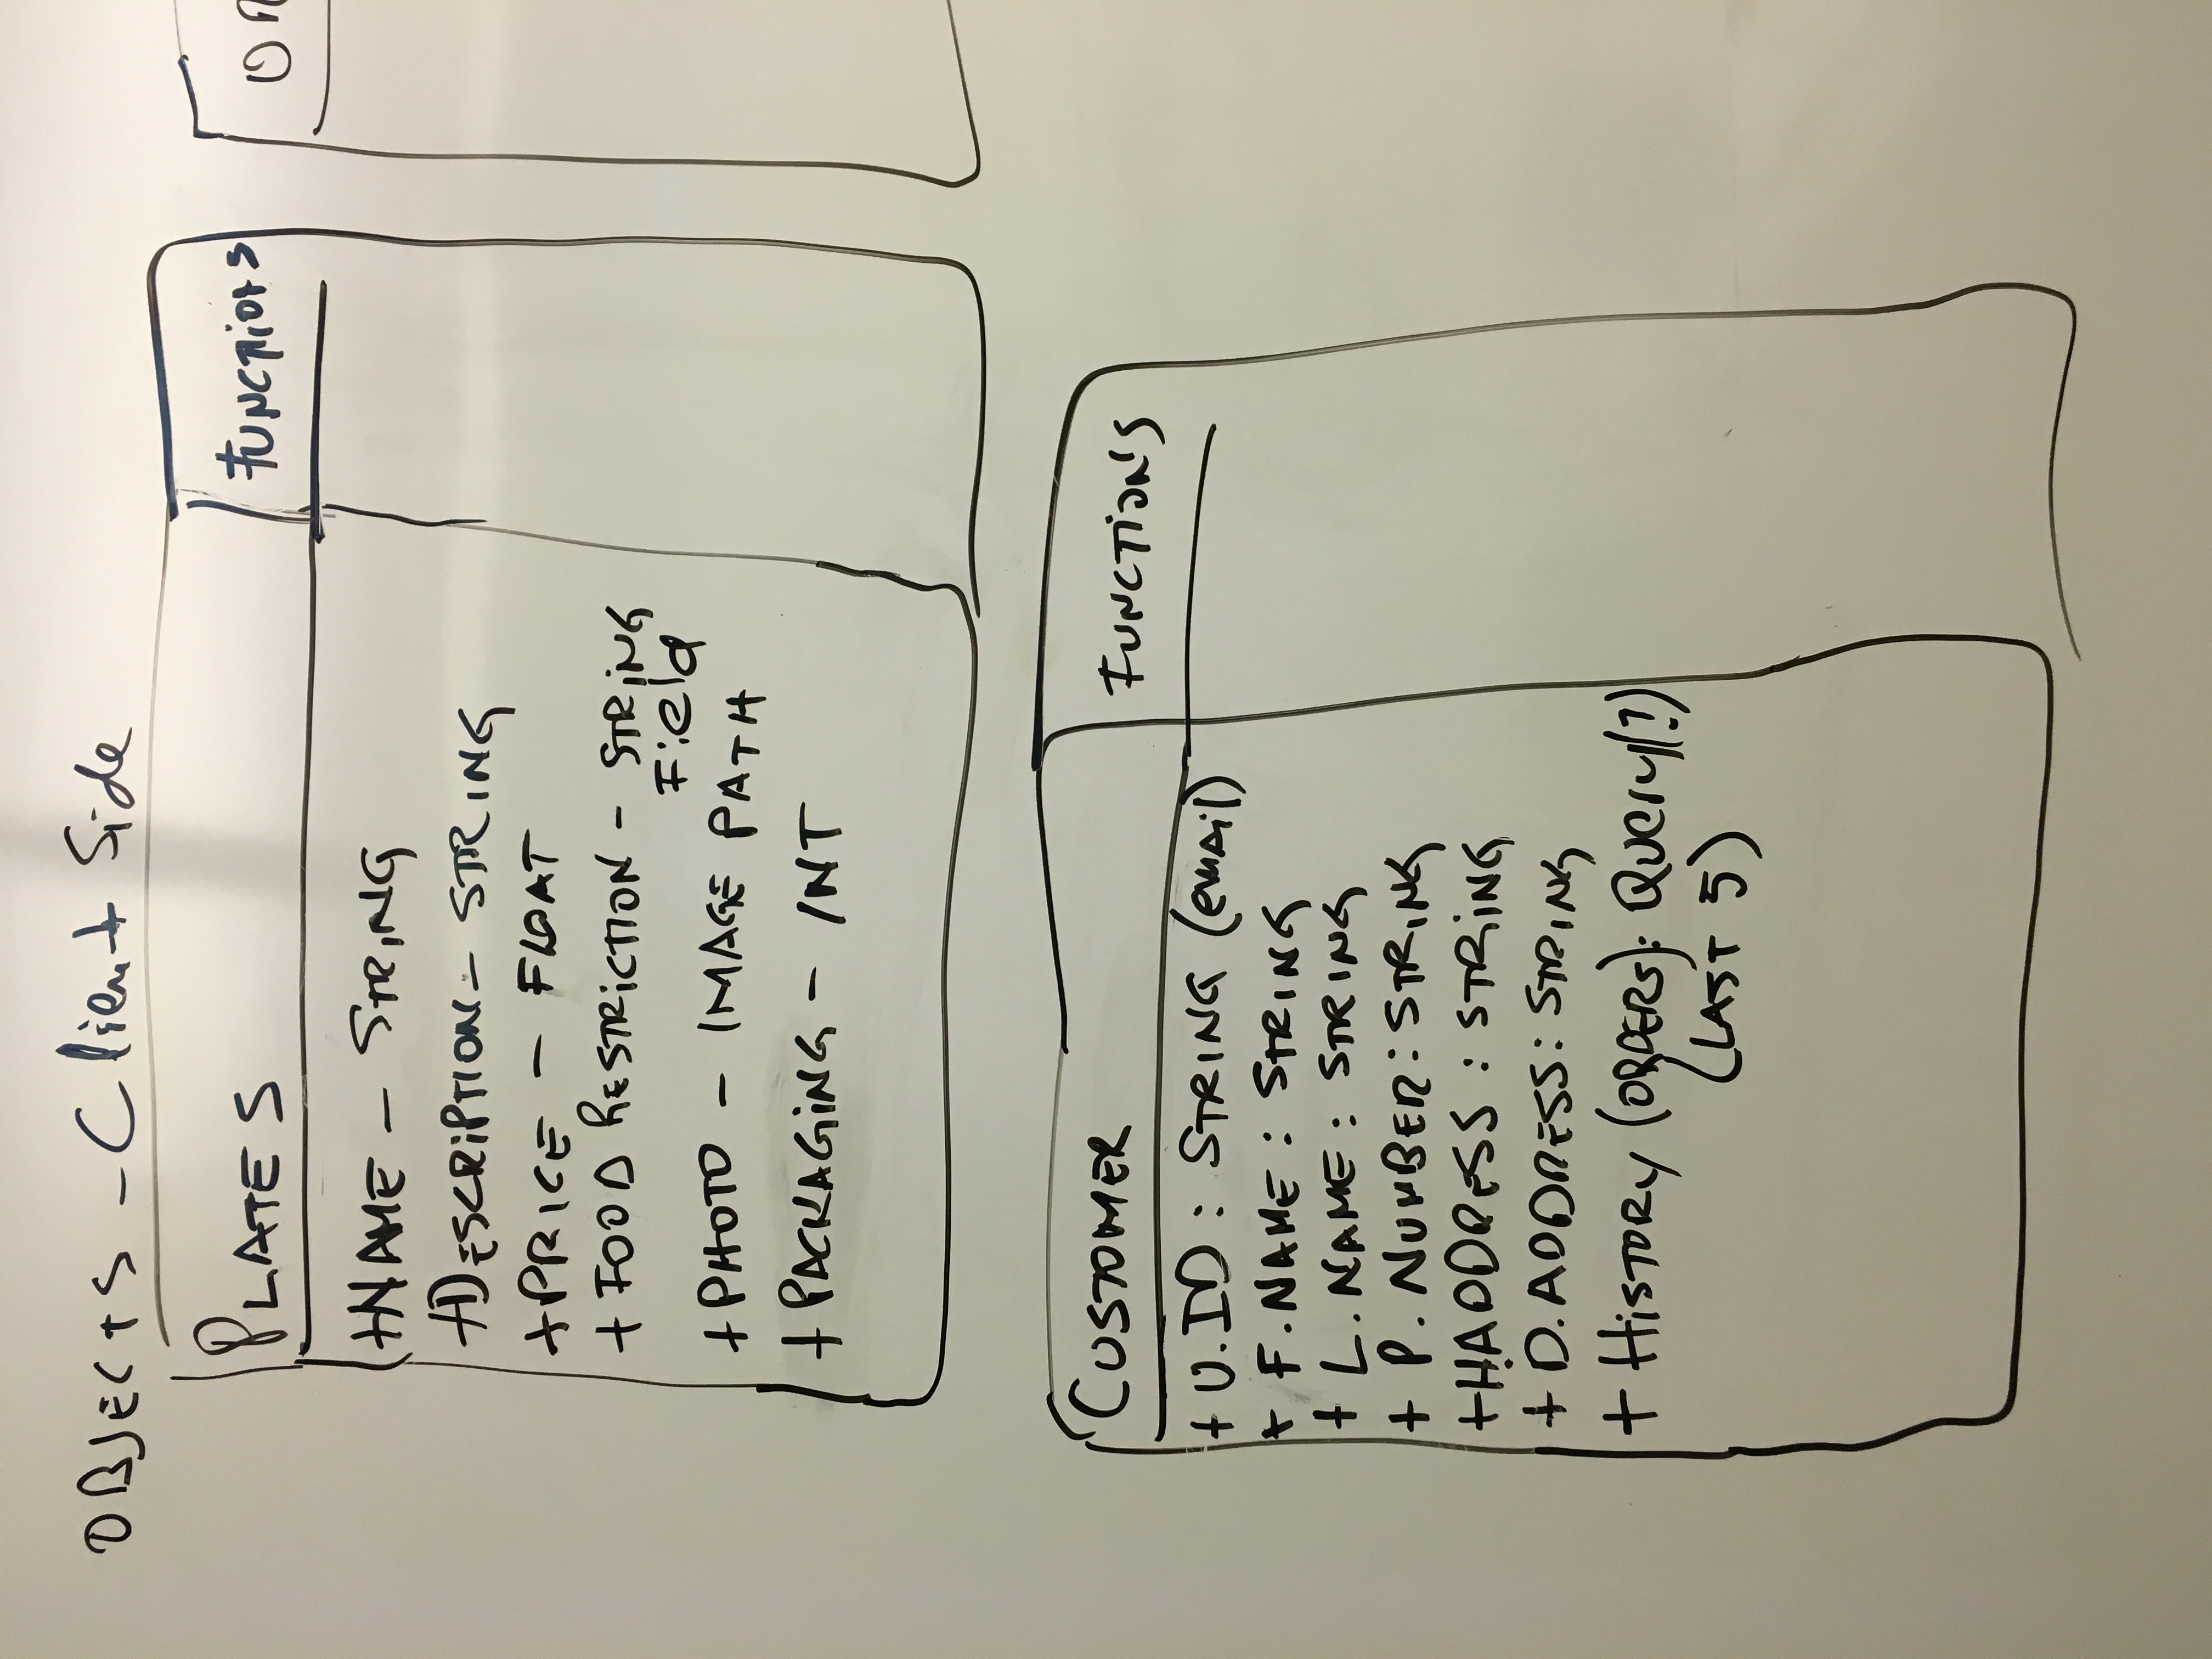 OBJECTS - Client Side
PLATES
FUNCTIONS
+NAME - STRING
+DESCRIPTION - STRING
+PRICE - FLOAT
+ FOOD RESTRICTION - STRING
Field
+ PHOTO - IMAGE PATH
+ PACKAGING - INT
CUSTOMER
FUNCTIONS
+ U.ID : STRING (email)
+ F.NAME : STRING
+ L.NAME : STRING
+ P. NUMBER: STRING
+ H.ADDRESS : STRING
+ D.ADDRESS: STRING
+ HISTORY (ORDERS): QUERY(?)
(LAST 5)